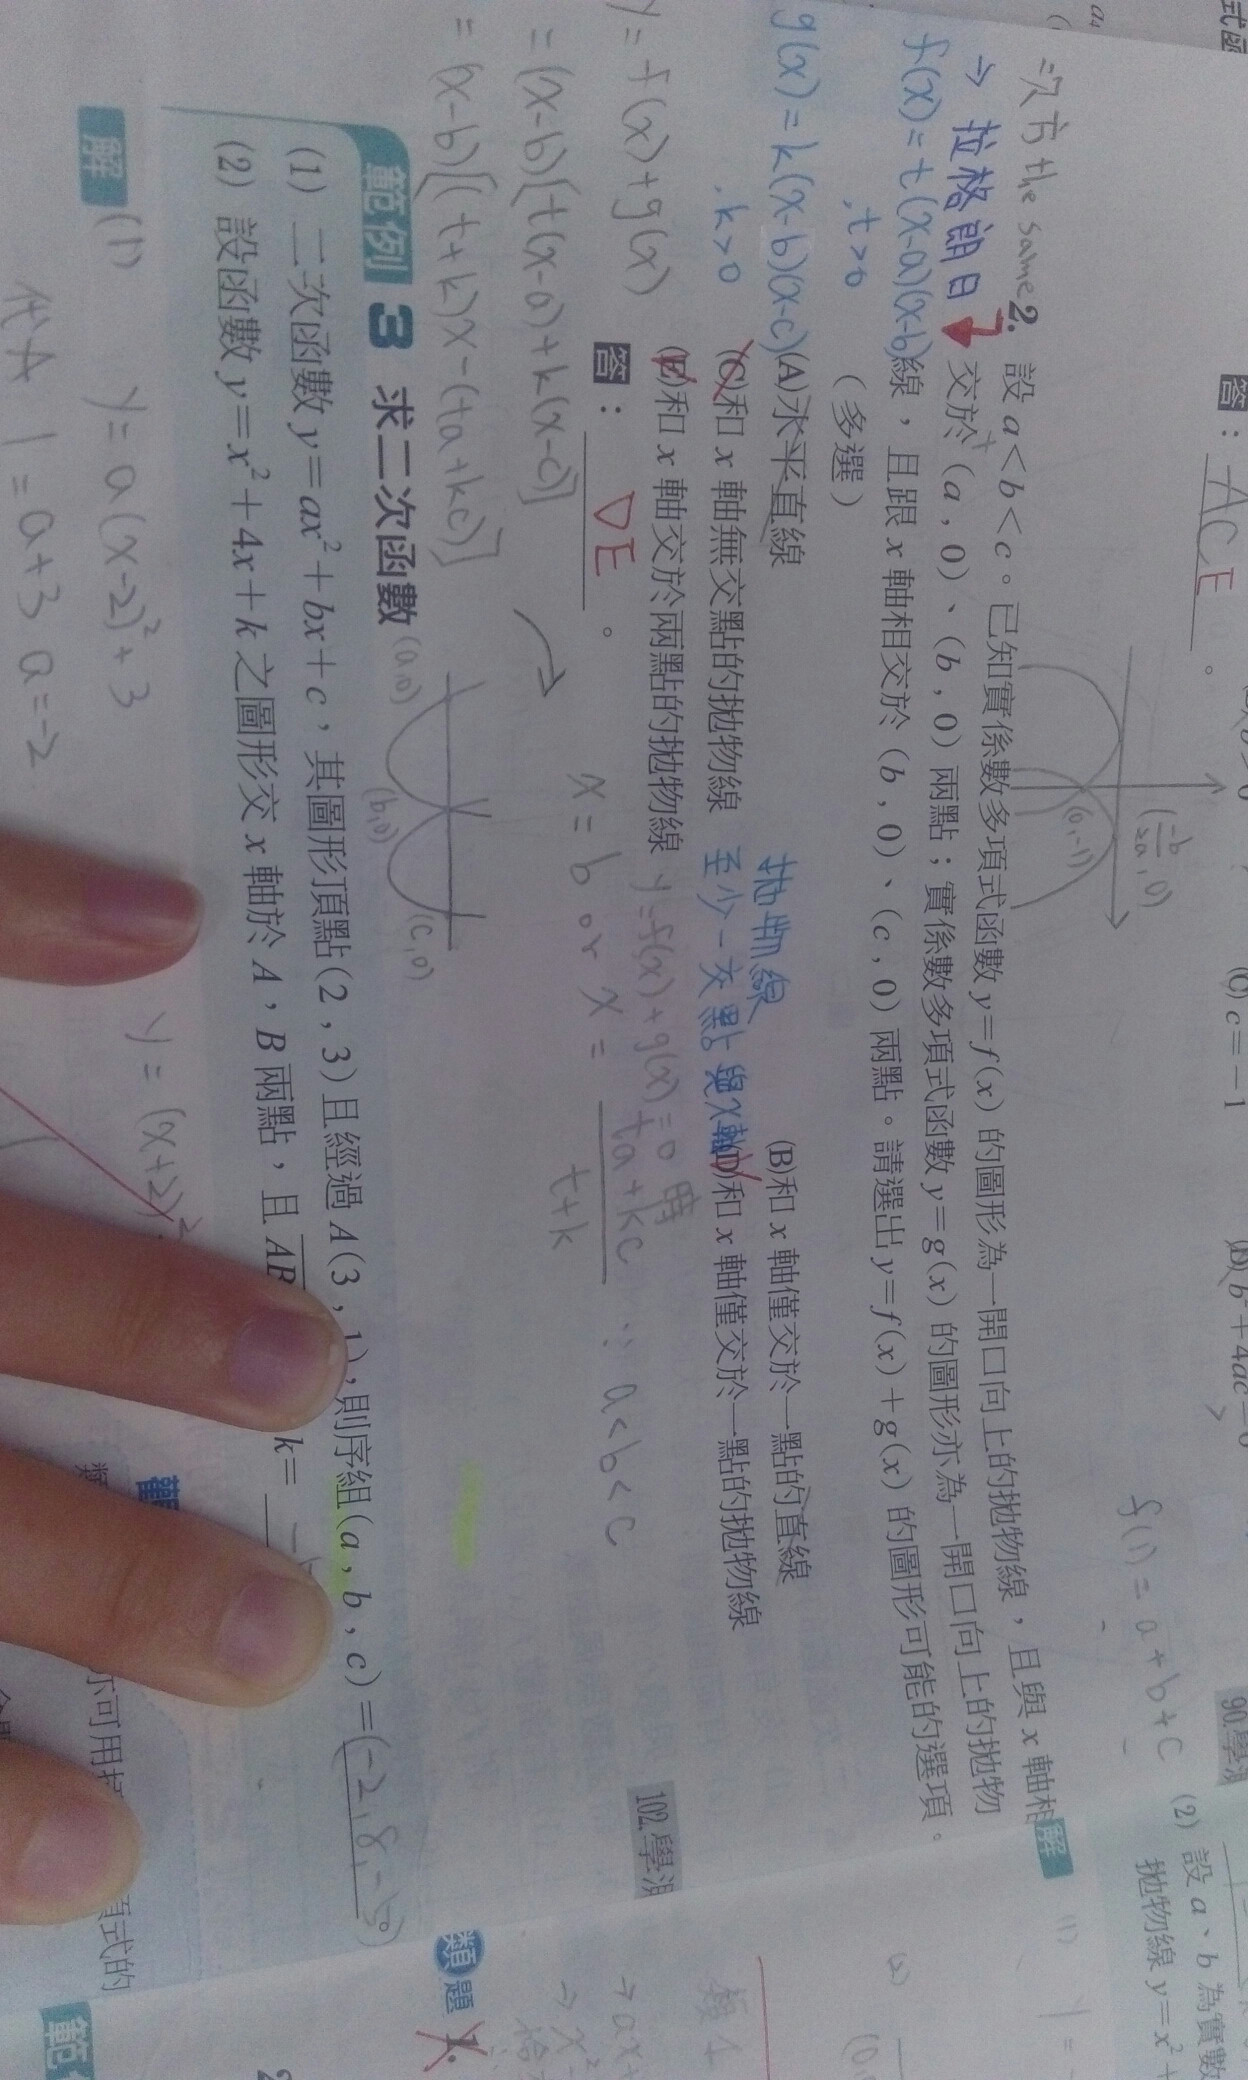 答：ACE。
(C) c=-1
(-b/2a, 0)
(0,-1)
f(1)=a+b+c
二次方 the same
→ 拉格朗日
2. 設 a<b<c。已知實係數多項式函數 y=f(x) 的圖形為一開口向上的拋物線，且與 x 軸相
交於 (a, 0)、(b, 0) 兩點；實係數多項式函數 y=g(x) 的圖形亦為一開口向上的拋物
線，且跟 x 軸相交於 (b, 0)、(c, 0) 兩點。請選出 y=f(x)+g(x) 的圖形可能的選項。
（多選）
f(x)=t(x-a)(x-b)
, t>0
g(x)=k(x-b)(x-c)
, k>0
(A)水平直線
(B)和 x 軸僅交於一點的直線
(C)和 x 軸無交點的拋物線
(D)和 x 軸僅交於一點的拋物線
(E)和 x 軸交於兩點的拋物線
拋物線
至少一交點與x軸
102.學測
答：DE。
y=f(x)+g(x)
=(x-b)[t(x-a)+k(x-c)]
=(x-b)[(t+k)x-(ta+kc)]
y=f(x)+g(x)=0 時
x=b or x=ta+kc/t+k ∵a<b<c
(a,0)
(b,0)
(c,0)
範例 3 求二次函數
(1) 二次函數 y=ax²+bx+c，其圖形頂點(2, 3)且經過 A(3, 1),則序組(a, b, c)=(-2,8,-5)
(2) 設函數 y=x²+4x+k 之圖形交 x 軸於 A，B 兩點，且 AB
k=
解 (1) y=a(x-2)²+3
代A 1=a+3 a=-2
y=(x+2)²
亦可用
解
(2) 設 a、b 為實數
拋物線 y=x²+
類題 1.
範